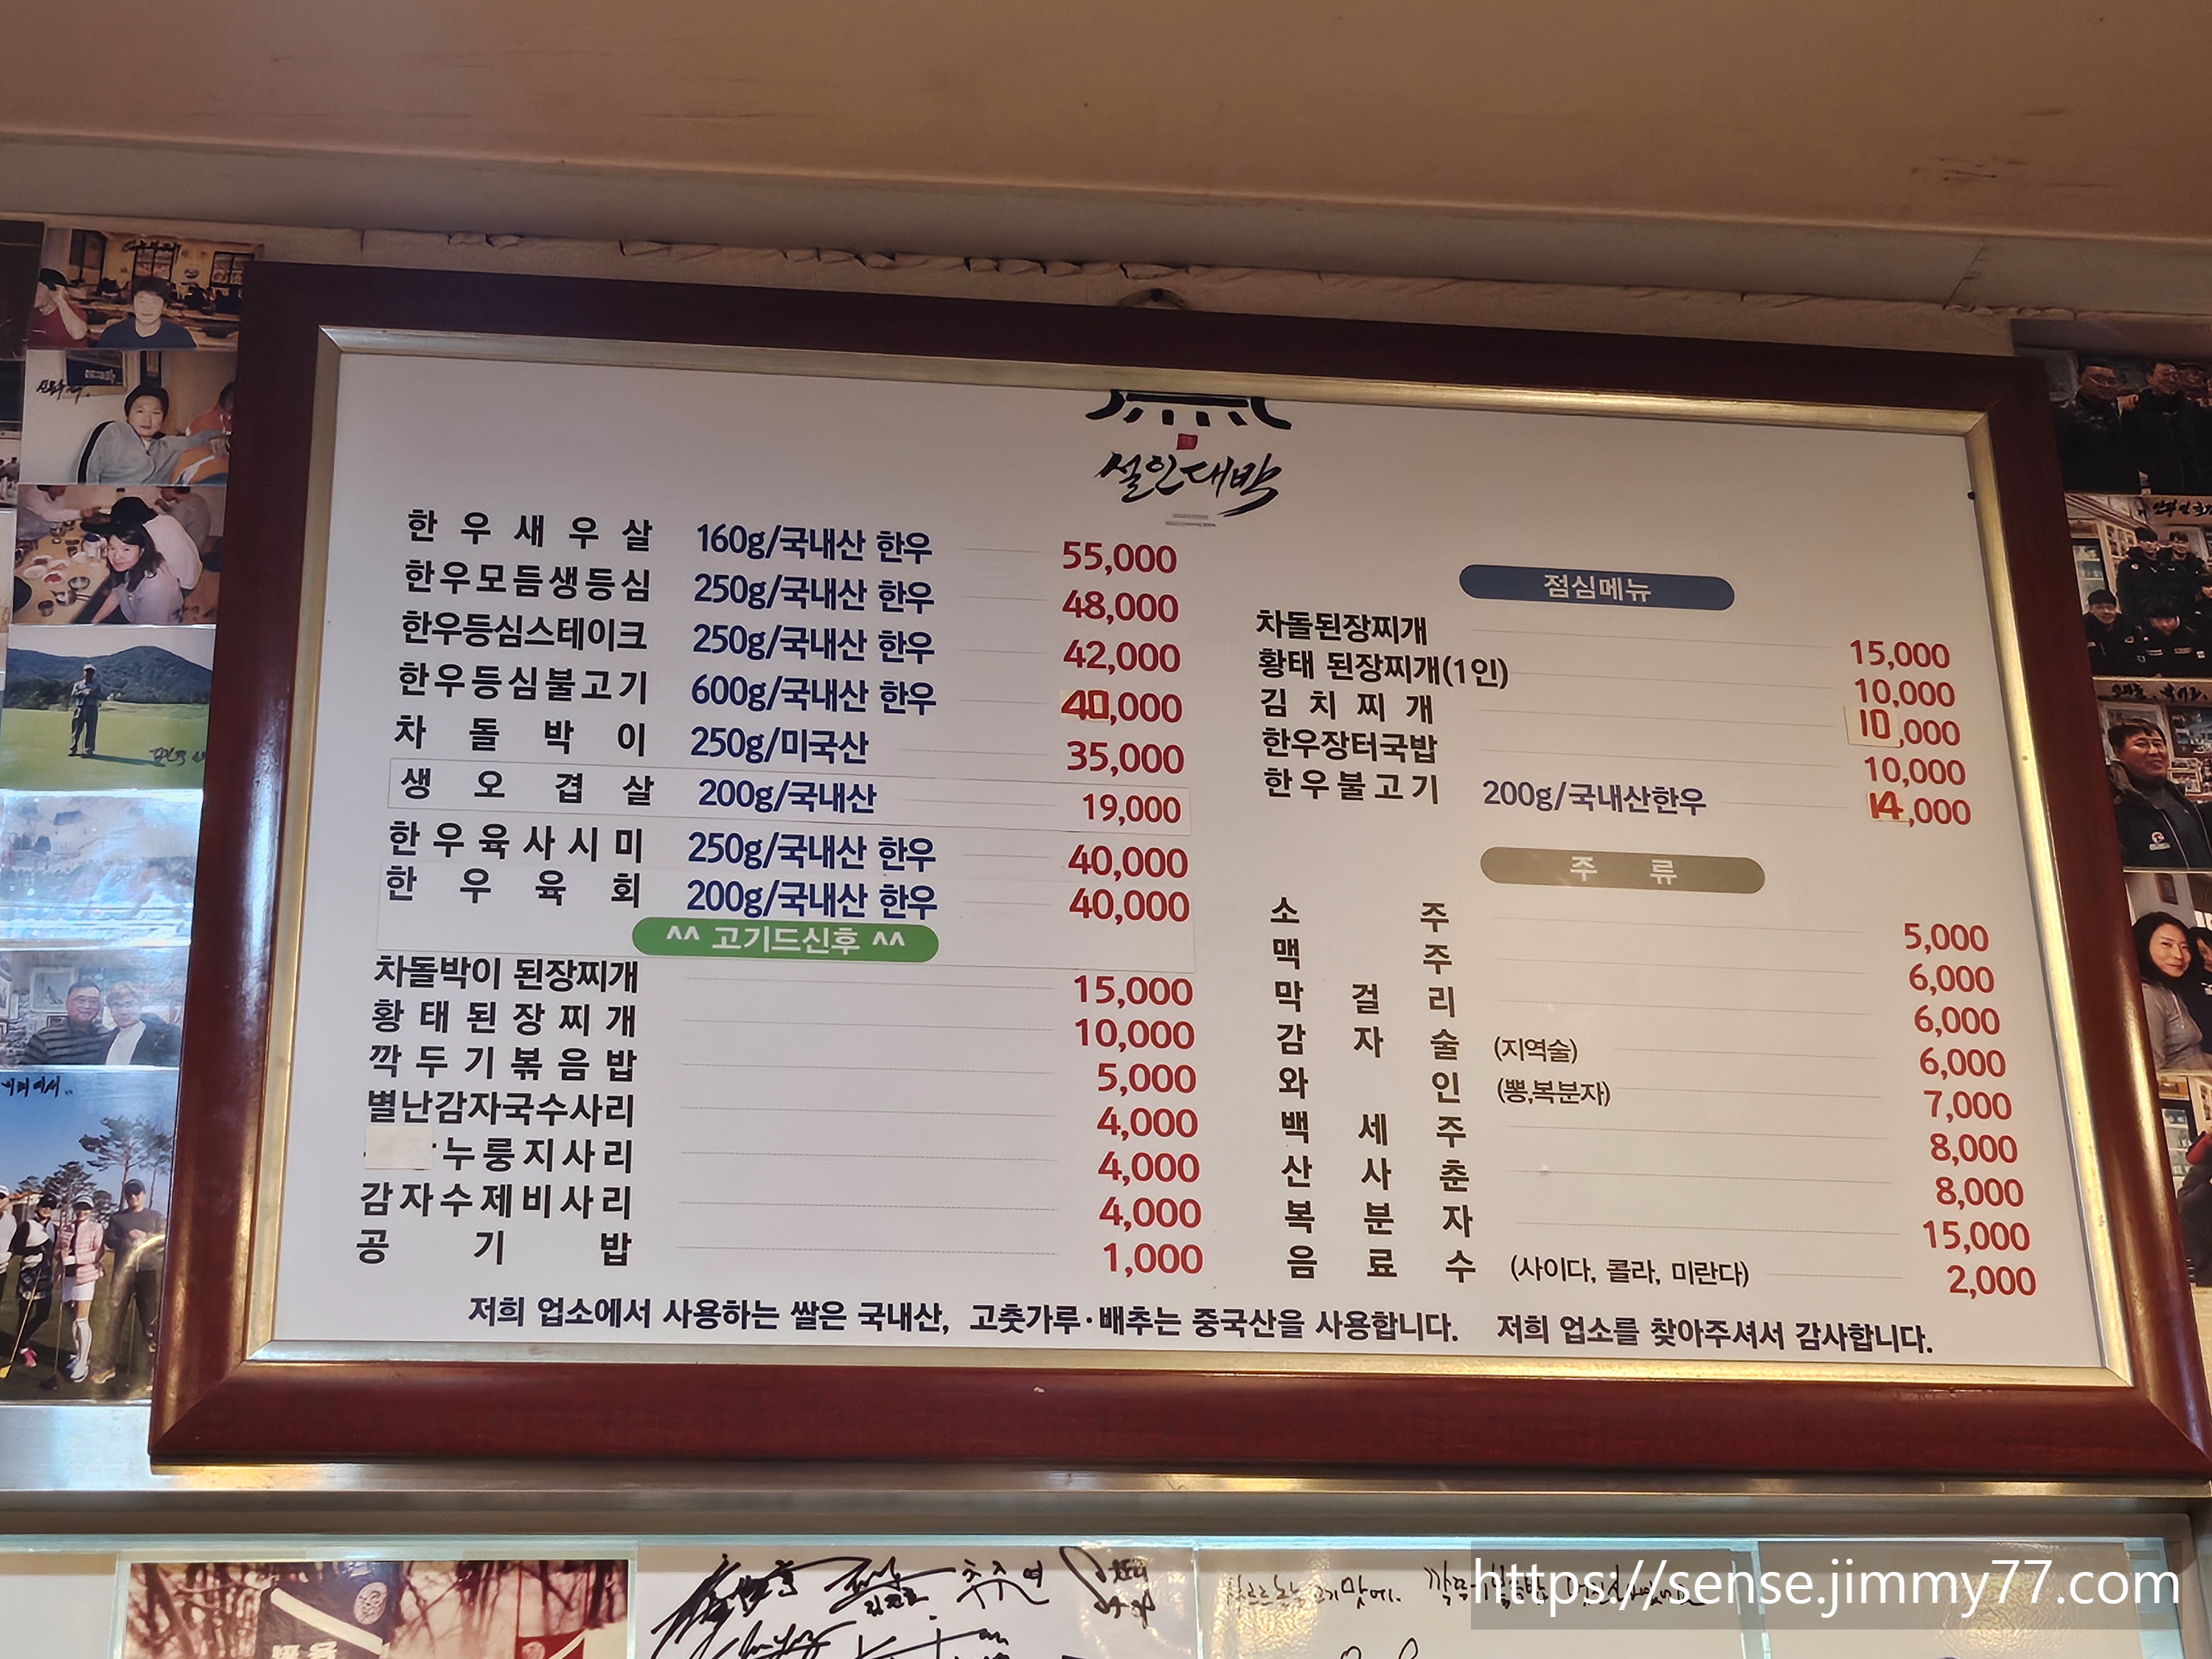 설인대박
한우새우살 160g/국내산 한우 55,000
한우모듬생등심 250g/국내산 한우 48,000
한우등심스테이크 250g/국내산 한우 42,000
한우등심불고기 600g/국내산 한우 40,000
차돌박이 250g/미국산 35,000
생오겹살 200g/국내산 19,000
한우육사시미 250g/국내산 한우 40,000
한우육회 200g/국내산 한우 40,000
^^ 고기드신후 ^^
차돌박이 된장찌개 15,000
황태된장찌개 10,000
깍두기볶음밥 5,000
별난감자국수사리 4,000
누룽지사리 4,000
감자수제비사리 4,000
공기밥 1,000
점심메뉴
차돌된장찌개 15,000
황태 된장찌개(1인) 10,000
김치찌개 10,000
한우장터국밥 10,000
한우불고기 200g/국내산한우 14,000
주류
소주 5,000
맥주 6,000
막걸리 6,000
감자술 (지역술) 6,000
와인 (뽕,복분자) 7,000
백세주 8,000
산사춘 8,000
복분자 15,000
음료수 (사이다, 콜라, 미란다) 2,000
저희 업소에서 사용하는 쌀은 국내산, 고춧가루·배추는 중국산을 사용합니다. 저희 업소를 찾아주셔서 감사합니다.
https://sense.jimmy77.com